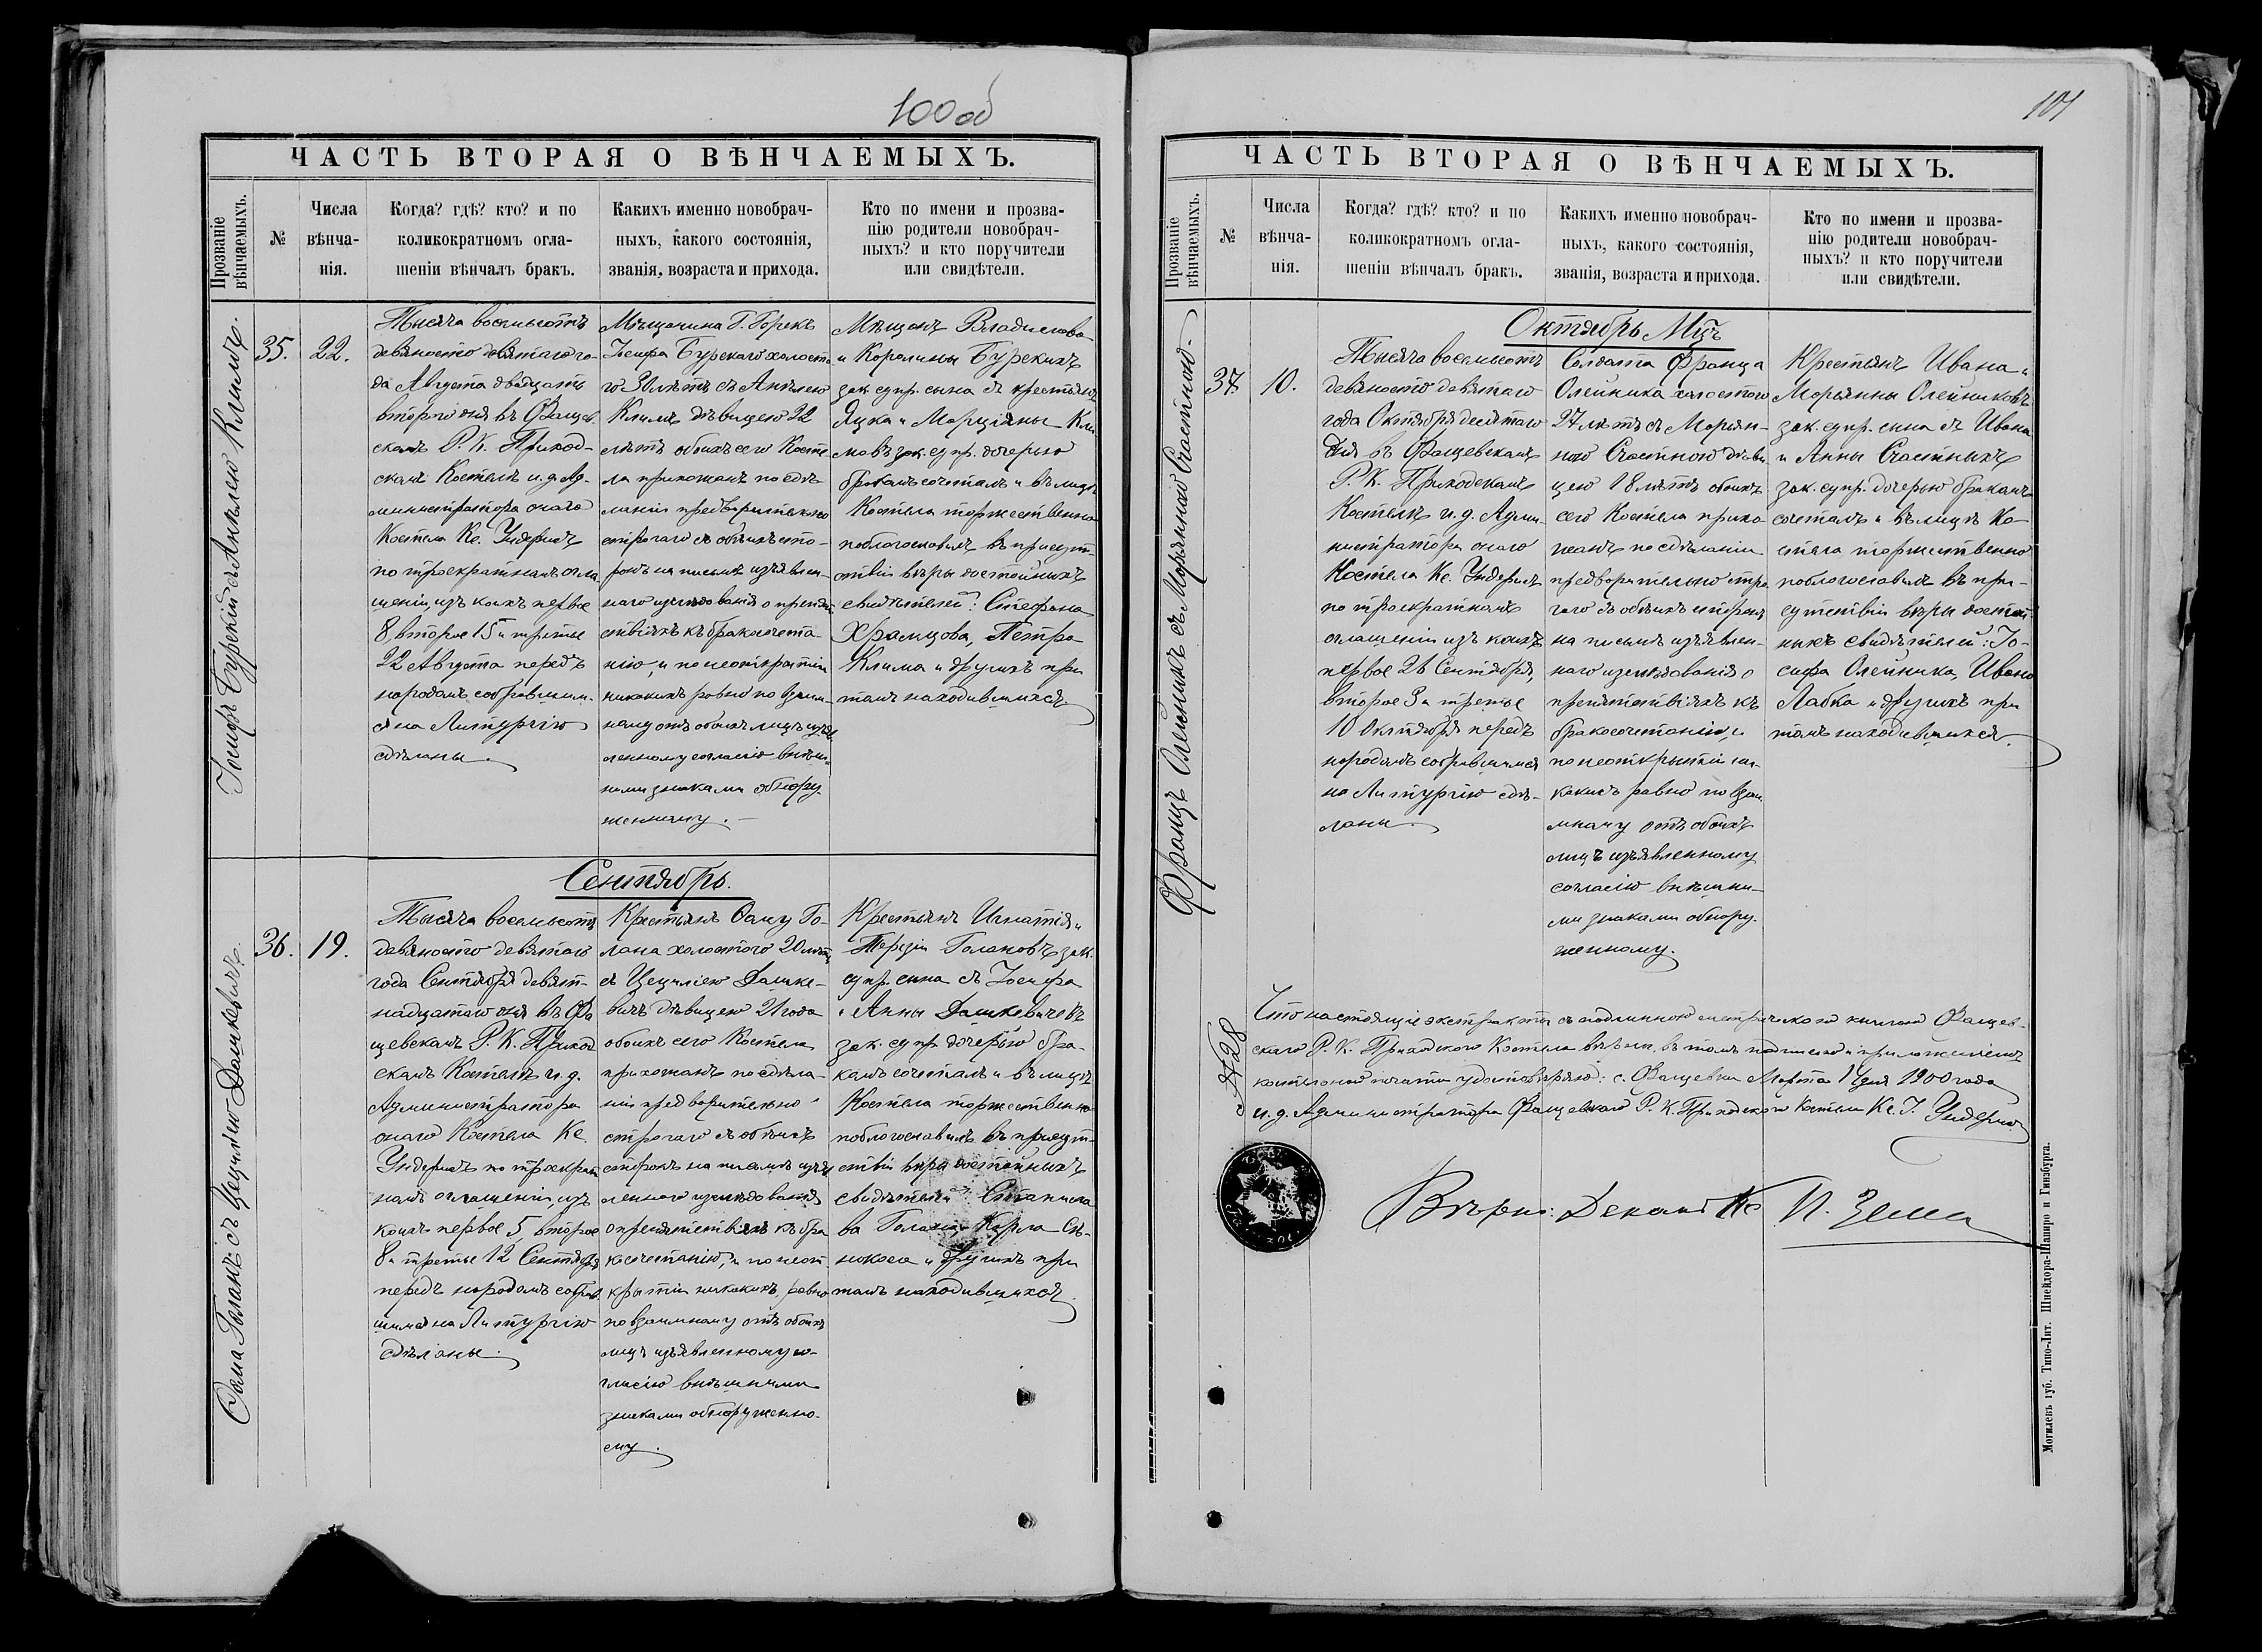 100 об
ЧАСТЬ ВТОРАЯ О ВѢНЧАЕМЫХЪ.
Прозваніе вѣнчаемыхъ.
№
Числа
вѣнча-
нія.
Когда? гдѣ? кто? и по
коликократномъ огла-
шеніи вѣнчалъ бракъ.
Какихъ именно новобрач-
ныхъ, какого состоянія,
званія, возраста и прихода.
Кто по имени и прозва-
нію родители новобрач-
ныхъ? и кто поручители
или свидѣтели.
Іосифъ Бурскій съ Анѣлею Климъ.
35.
22.
Тысяча восемьсотъ
девяносто девятаго го-
да Августа двадцать
втораго дня въ Фащев-
скомъ Р. К. Приход-
скомъ Костелѣ и. д. Ад-
министратора онаго
Костела Кс. Ундерисъ
по троекратномъ огла-
шеніи, изъ коихъ первое
8, второе 15 и третье
22 Августа передъ
народомъ собравшим-
ся на Литургію
сдѣланы.
Мѣщанина Г. Горекъ
Іосифа Бурскаго холосто-
го лѣтъ съ Анѣлею
Климъ дѣвицею 22
лѣтъ обоихъ сего Косте-
ла прихожанъ по сдѣ-
ланіи предварительно
строгаго съ обѣихъ сто-
ронъ на письмѣ изъявлен-
наго изслѣдованія о препят-
ствіяхъ къ бракосочета-
нію, и по неоткрытіи
никакихъ равно по взаим-
ному отъ обоихъ лицъ изъяв-
ленному согласію внѣш-
ними знаками обнару-
женному.
Мѣщанъ Владислава
и Каролины Бурскихъ
зак. супр. сына съ крестьянъ
Яцка и Марціяны Кли-
мовъ зак. супр. дочерью
бракомъ сочеталъ и въ лицѣ
Костела торжественно
поблагословилъ въ присут-
ствіи вѣры достойныхъ
свидѣтелей: Стефана
Храмцова, Петра
Клима и другихъ при
томъ находившихся.
Сентябрь.
Сама Голанъ съ Цециліею Дашкевичъ.
36.
19.
Тысяча восемьсотъ
девяносто девятаго
года Сентября девят-
надцатаго дня въ Фа-
щевскомъ Р. К. Приход-
скомъ Костелѣ и. д.
Администратора
онаго Костела Кс.
Ундерисъ по троекрат-
номъ оглашеніи, изъ
коихъ первое 5, второе
8 и третье 12 Сентября
передъ народомъ собрав-
шимся на Литургію
сдѣланы.
Крестьянъ Саму Го-
лана холостого 20 лѣтъ
съ Цециліею Дашке-
вичъ дѣвицею 21 года
обоихъ сего Костела
прихожанъ по сдѣла-
ніи предварительно
строгаго съ обѣихъ
сторонъ на письмѣ изъяв-
леннаго изслѣдованія
о препятствіяхъ къ бра-
косочетанію, и по неот-
крытіи никакихъ равно
по взаимному отъ обоихъ
лицъ изъявленному со-
гласію внѣшними
знаками обнаруженно-
му.
Крестьянъ Игнатія и
Терезіи Голановъ зак.
супр. сына съ Іосифа
и Анны Дашкевичевъ
зак. супр. дочерью бра-
комъ сочеталъ и въ лицѣ
Костела торжественно
поблагословилъ въ присут-
ствіи вѣры достойныхъ
свидѣтелей Станисла-
ва Голана Карла Сѣ-
нокоса и другихъ при
томъ находившихся.
101
ЧАСТЬ ВТОРАЯ О ВѢНЧАЕМЫХЪ.
Прозваніе вѣнчаемыхъ.
№
Числа
вѣнча-
нія.
Когда? гдѣ? кто? и по
коликократномъ огла-
шеніи вѣнчалъ бракъ.
Какихъ именно новобрач-
ныхъ, какого состоянія,
званія, возраста и прихода.
Кто по имени и прозва-
нію родители новобрач-
ныхъ? и кто поручители
или свидѣтели.
Октябрь Мцъ
Францъ Олейникъ съ Марьянною Счастною.
37.
10.
Тысяча восемьсотъ
девяносто девятаго
года Октября десятаго
дня въ Фащевскомъ
Р. К. Приходскомъ
Костелѣ и. д. Адми-
нистратора онаго
Костела Кс. Ундерисъ
по троекратномъ
оглашеніи изъ коихъ
первое 26 Сентября,
второе 3 и третье
10 Октября передъ
народомъ собравшимся
на Литургію сдѣ-
ланы.
Солдата Франца
Олейника холостого
27 лѣтъ съ Марьян-
ною Счастною дѣви-
цею 18 лѣтъ обоихъ
сего Костела прихо-
жанъ по сдѣланіи
предварительно стро-
гаго съ обѣихъ сторонъ
на письмѣ изъявлен-
наго изслѣдованія о
препятствіяхъ къ
бракосочетанію, и
по неоткрытіи ни-
какихъ равно по взаи-
мному отъ обоихъ
лицъ изъявленному
согласію внѣшни-
ми знаками обнару-
женному.
Крестьянъ Ивана и
Марьянны Олейниковъ
зак. супр. сына съ Ивана
и Анны Счастныхъ
зак. супр. дочерью бракомъ
сочеталъ и въ лицѣ Ко-
стела торжественно
поблагословилъ въ при-
сутствіи вѣры достой-
ныхъ свидѣтелей: Іо-
сифа Олейника, Ивана
Лабка и другихъ при
томъ находившихся.
№ 28
Что настоящіе экстракты съ подлинною метрическою книгою Фащев-
скаго Р. К. Приходскаго Костела вѣрны, въ томъ подписью и приложеніемъ
костельной печати удостовѣряю: с. Фащевка Марта 14 дня 1900 года
и. д. Администратора Фащевскаго Р. К. Приходскаго Костела Кс. І. Ундерисъ
Вѣрно: Деканъ Кс. П. Зелла
Могилевъ губ. Типо-Лит. Шнейдора-Шапиро и Гинзбурга.